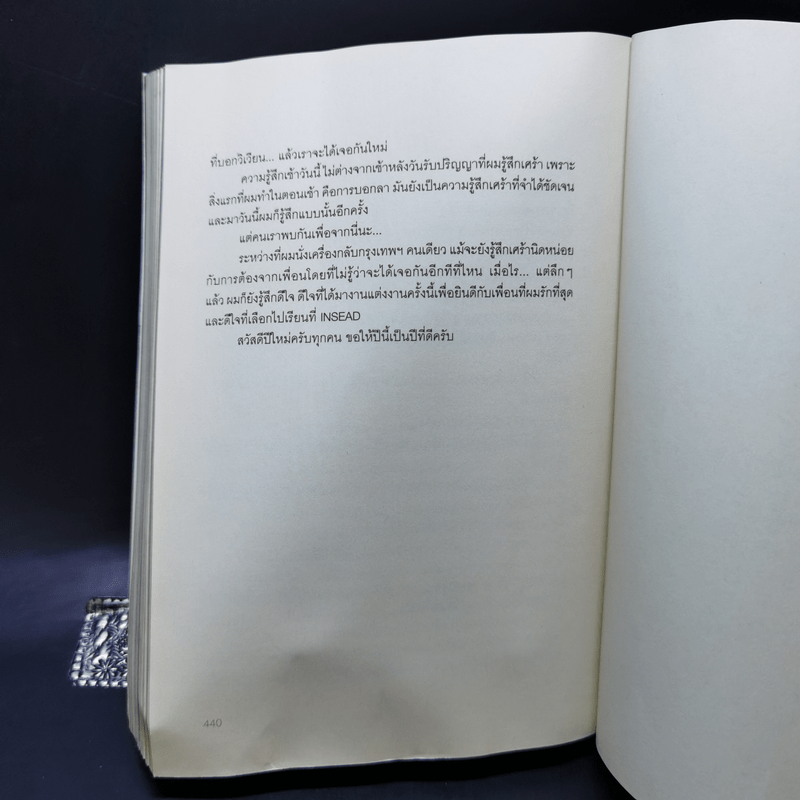 ที่บอกวิเวียน... แล้วเราจะได้เจอกันใหม่
ความรู้สึกเช้าวันนี้ ไม่ต่างจากเช้าหลังวันรับปริญญาที่ผมรู้สึกเศร้า เพราะ
สิ่งแรกที่ผมทำในตอนเช้า คือการบอกลา มันยังเป็นความรู้สึกเศร้าที่จำได้ชัดเจน
และมาวันนี้ผมก็รู้สึกแบบนั้นอีกครั้ง
แต่คนเราพบกันเพื่อจากนี่นะ...
ระหว่างที่ผมนั่งเครื่องกลับกรุงเทพฯ คนเดียว แม้จะยังรู้สึกเศร้านิดหน่อย
กับการต้องจากเพื่อนโดยที่ไม่รู้ว่าจะได้เจอกันอีกทีที่ไหน เมื่อไร... แต่ลึกๆ
แล้ว ผมก็ยังรู้สึกดีใจ ดีใจที่ได้มางานแต่งงานครั้งนี้เพื่อยินดีกับเพื่อนที่ผมรักที่สุด
และดีใจที่เลือกไปเรียนที่ INSEAD
สวัสดีปีใหม่ครับทุกคน ขอให้ปีนี้เป็นปีที่ดีครับ
440